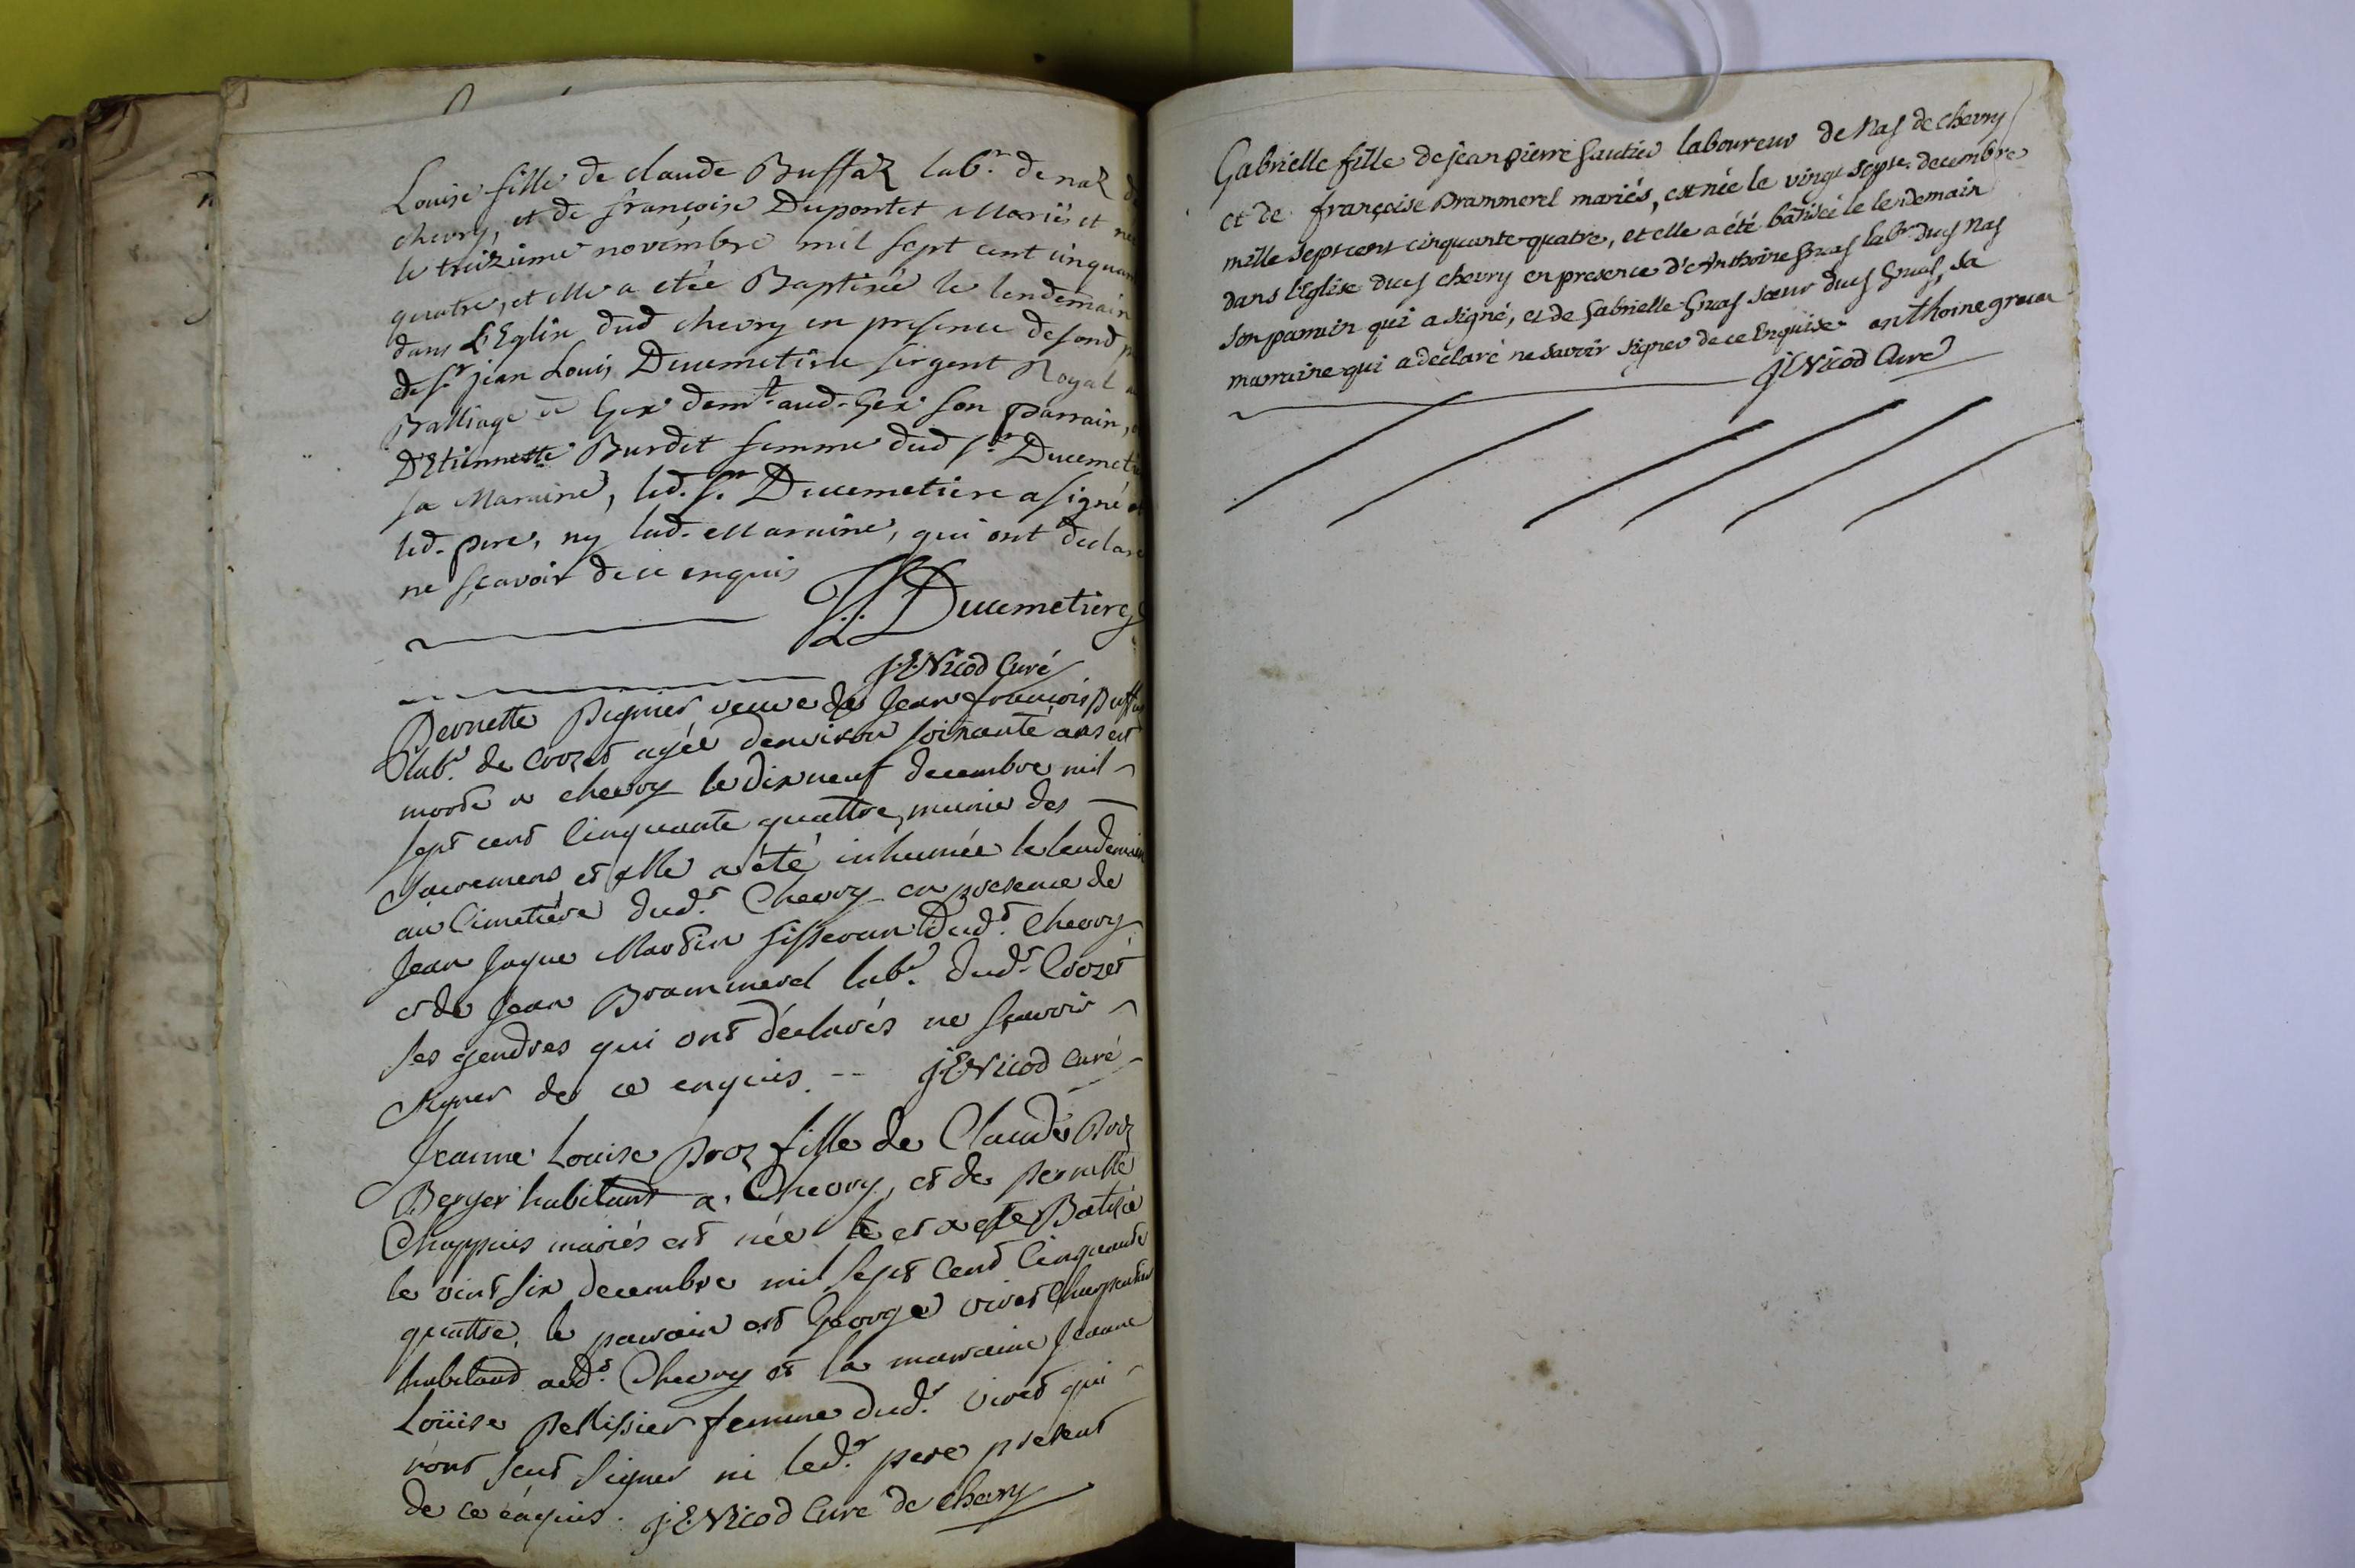 Louise fille de claude Buffaz lab.r de naz de
chevry, et de françoise Dupontet Mariés et née
le treizieme novembre mil sept cent cinquante
quatre, et elle a etée Baptisée le lendemain
dans L'Eglise dud chevry en presence desond
de s.r jean Louis Ducemetiere sergent Royal au
Balliage de Gex dem.t aud. Gex son parrain, et
D'Etiennette Burdet femme dud s.r Ducemetiere
sa Maraine, led. s.r Ducemetiere a signé et
led. pere, ny lad. Maraine, qui ont declaré
ne sçavoir de ce enquis
J.L. Ducemetiere
j.E. Nicod Curé
Pernette Pignier veuve de Jean françois Buffaz
lab.r de Crozet agée denviron soixante ans est
morte a chevry le dixneuf decembre mil
sept cent Cinquante quattre, munie des
sacremens et elle a été inhumée le lendemain
au Cimetiére dud.t Chevry en presence de
Jean Jaque Martin tisseran dud.t Chevry
et de Jean Brammerel lab.r dud.t Crozet
ses gendres qui ont déclarés ne sçavoir
signer de ce enquis. -- j.E. Nicod Curé
Jeanne Louise Proz fille de Claude Proz
Berger habitant a Chevry, et de pernette
Chappuis mariés est née le et a eté Batisée
le vint six decembre mil sept Cent Cinquante
quattre, le parain est George vivet Charpentier
habitant aud.t Chevry et la maraine Jeanne
Loüise Pellissier femme dud.t vivet qui
n'ont sçut signer ni led.t pere present
de ce enquis. j.E. Nicod Curé de chevry
Gabrielle fille de jean pierre Gautier laboureur de Nas de chevry
et de françoise Brammerel mariés, est née le vingt sept.e decembre
mille sept cent cinquante quatre, et elle a été bâtisée le le demain
dans l'Eglise dud chevry en presence d'Anthoine Gras lab.r dud Nas
son parrain qui a signé, et de Gabrielle Gras soeur dud Gras, sa
marraine qui a declaré ne savoir signer de ce Enquise anthoine gras
j.E. Nicod Curé